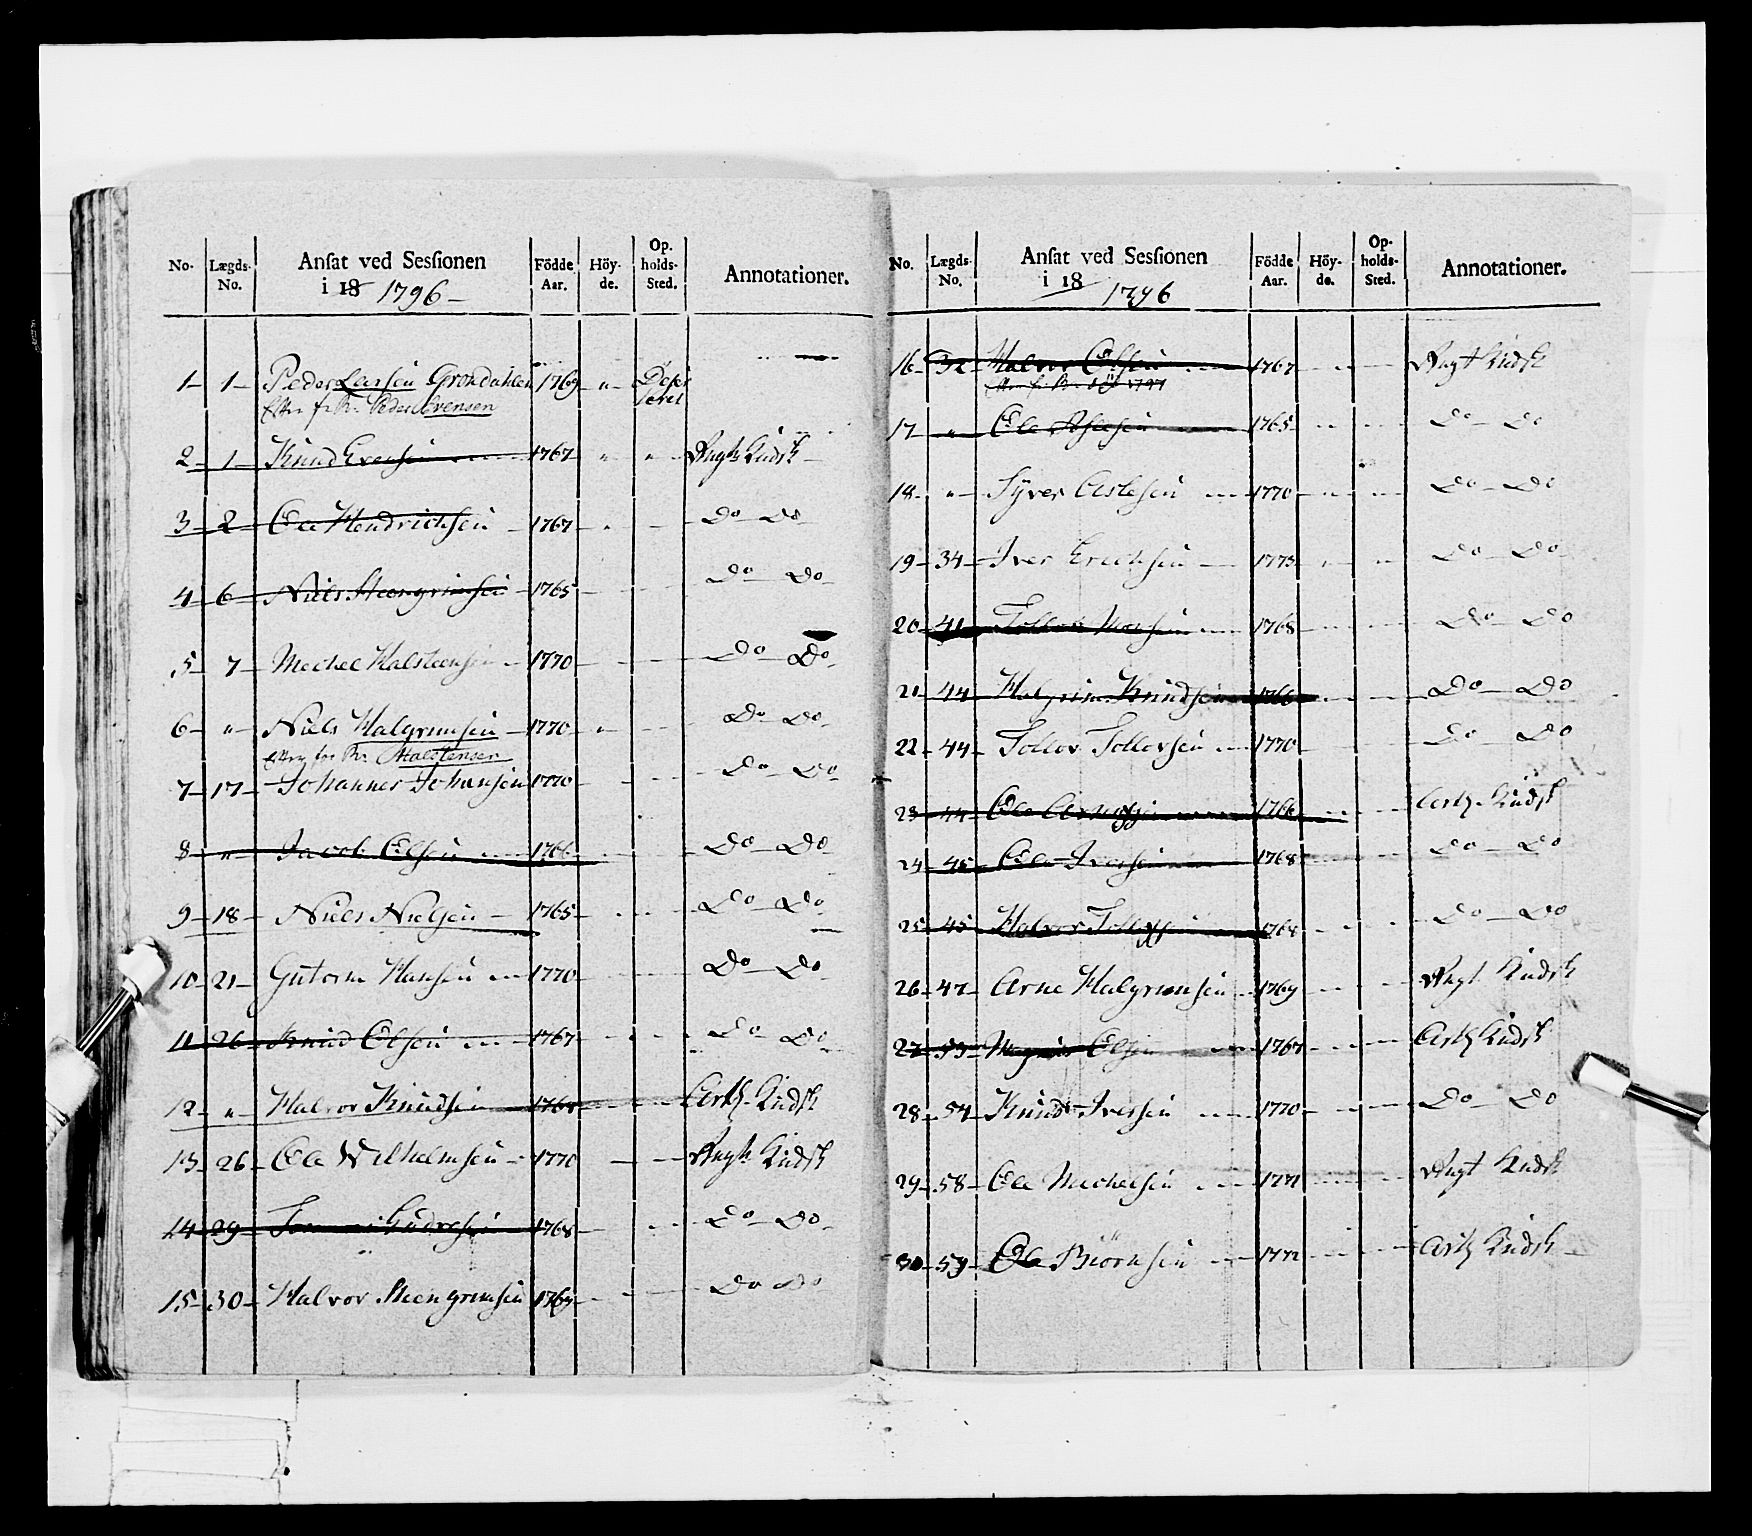 No. Lægds- No. Ansat ved Sessionen i 18 1796 – Födde Aar. Höy- de. Op- holds- Sted. Annotationer.
1 – 1 – Peder Larsen Grøndahlen 1769 " Deser
Efter fr. Rr. Peder Evensen teret
2 – 1 – Knud Evensen 1767 " " Kudsk
3 – 2 – Ole Hendrichsen – 1767 – Do Do
4 – 6 – Niels Steengrimsen 1765 – Do Do
5 – 7 – Mechel Halsteensen – 1770 – Do Do
6 – " – Niels Halgrimsen – 1770 – Do Do
Halstensen
7 – 17 – Johannes Johansen 1770 – Do Do
8 – " – Jacob Olsen 1766 – Do Do
9 – 18 – Niels Nielsen – 1765 – Do Do
10 – 21 – Gutorm Hansen 1770 – Do Do
11 26 – Knud Olsen 1767 – Do Do
12 – " – Halvor Knudsen 1768 Kudsk
13 – 26 – Ole Wilhelmsen – 1770 Kudsk
14 – 29 – 1768 – Do Do
15 – 30 – Halvor Steengrimsen 1769 Do Do
No. Lægds- No. Ansat ved Sessionen i 18 1796 Födde Aar. Höy- de. Op- holds- Sted. Annotationer.
16 – 32 – Halvor Olsen 1767 Kudsk
17 – " – Ole 1765 Do Do
18 – " – Syver Aslesen 1770 Do – Do
19 – 34 – Iver Erichsen – 1773 Do – Do
20 – 41 – Tollov 1768 – Do Do
21 – 44 – Halgrim Knudsen 1766 Do – Do
22 – 44 – Tollov Tollevsen 1770 – Do Do
23 – 44 – Ole 1766 Kudsk
24 – 45 – Ole Iversen 1768 Do – Do
25 – 45 – Halvor 1768 Do – Do
26 – 47 – Arne Halgrimsen 1769 Kudsk
27 – 53 – Olsen 1767 Kudsk
28 – 54 – Knud Iversen 1770 – Do Do
29 – 58 – Ole Michelsen 1771 Kudsk
30 – 59 – Ole Biörnsen 1772 Kudsk